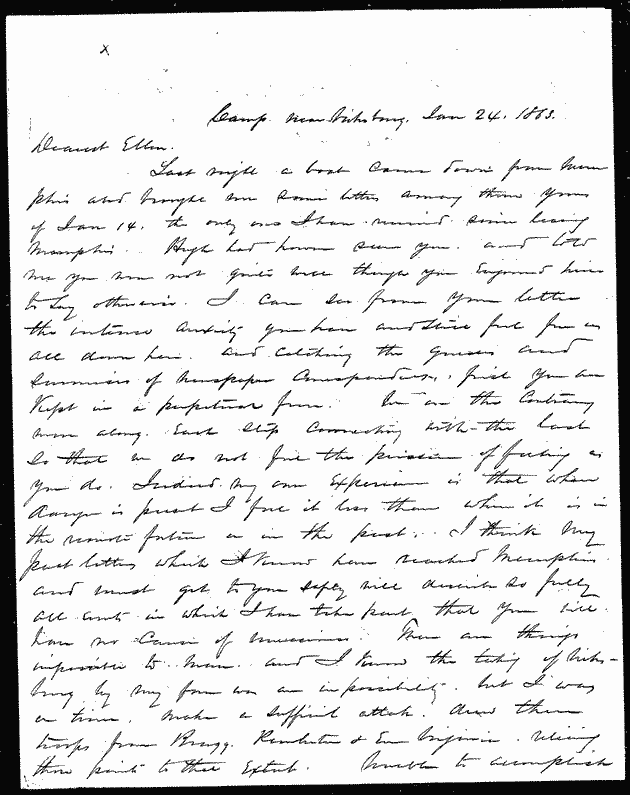 x
Camp near Vicksburg, Jan 24, 1863.
Dearest Ellen,
Last night a boat came down from Mem
phis and brought me some letters among them yours
of Jan 14. the only one I have received since leaving
Memphis. Hugh had however seen you and told
me you were not quite well though you enjoined him
to say otherwise. I can see from your letter
the intense anxiety you have and still feel for us
all down here. and catching the guesses and
surmises of Newspaper Correspondents, find you are
Kept in a perpetual fever. We on the Contrary
move along. Each step connecting with the last
So that we do not feel the pression of feeling as
you do. Indeed my own Experience is that when
danger is present I feel it less than when it is in
the remote future or in the past. I think my
past letters which I know have reached Memphis
and must get to you safely will describe so fully
all events in which I have taken part, that you will
have no Cause of uneasiness. There are things
impossible to man. and I know the taking of Vicks-
burg by my force was an impossibility. but I was
on time, made a sufficient attack. drew there
troops from Bragg, Pemberton & Em Virginia. relieving
those points to that Extent. Unable to accomplish